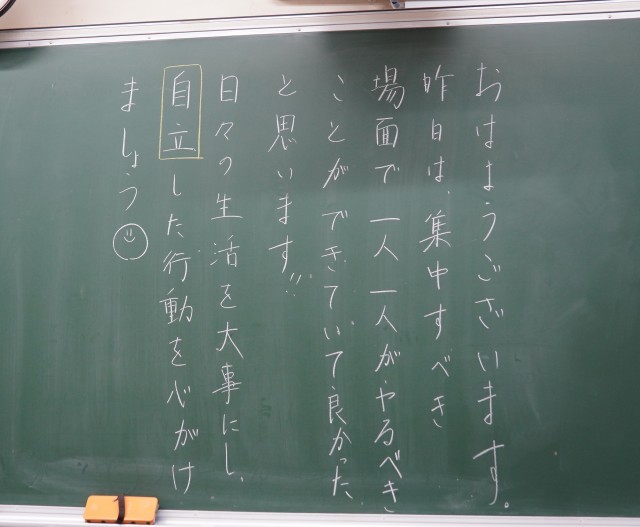 おはようございます。
昨日は、集中すべき
場面で一人一人がやるべき
ことができていて良かった
と思います!!
日々の生活を大事にし、
自立した行動を心がけ
ましょう